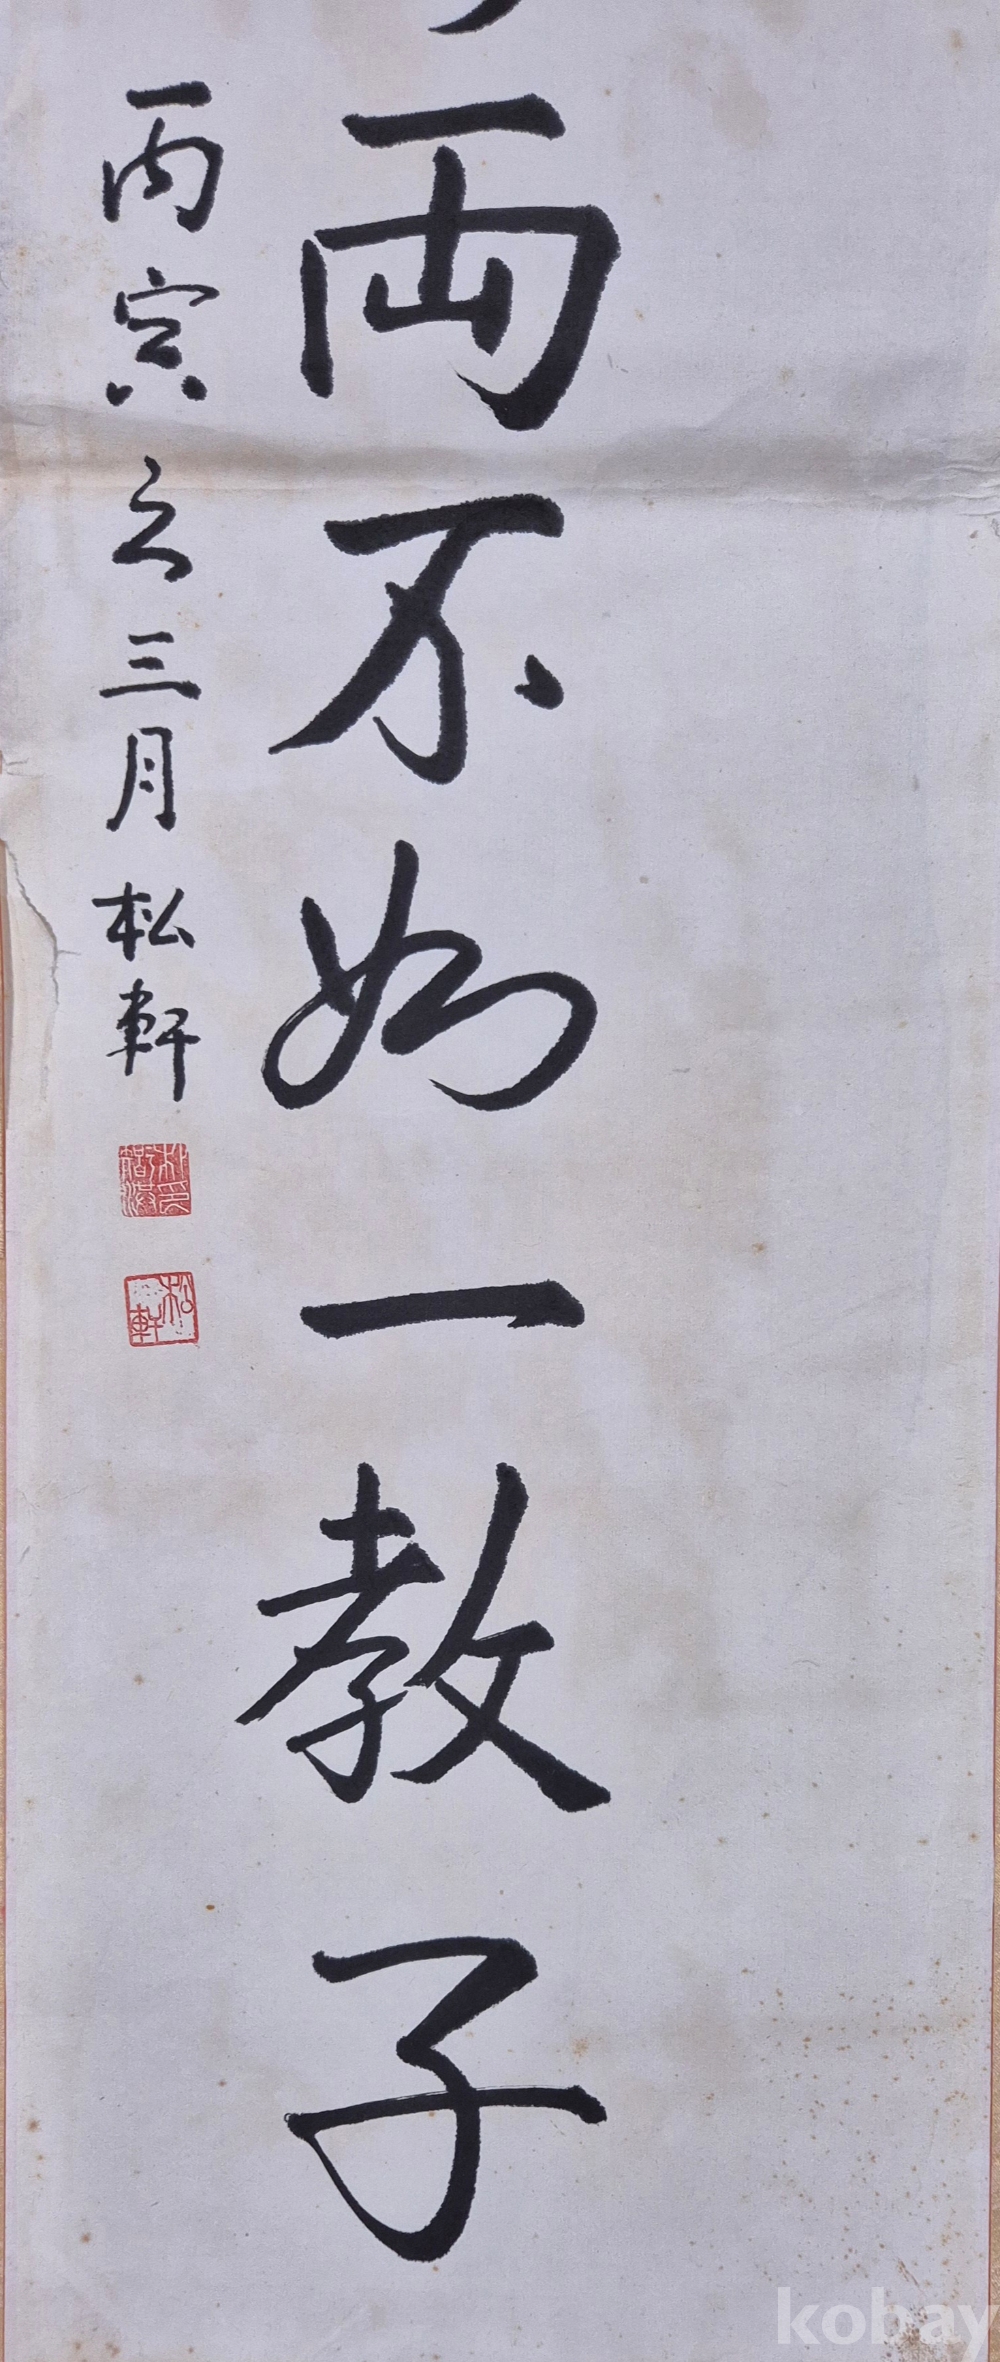 兩不如一教子
丙寅之三月 松軒
松軒
kobay